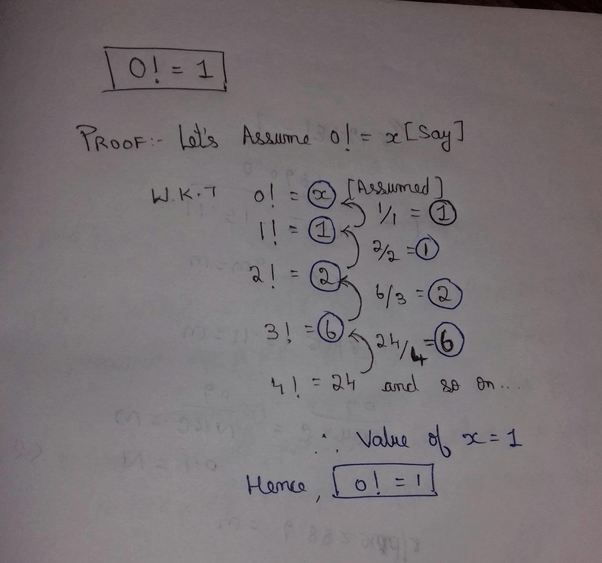 0! = 1
PROOF:- Let's Assume 0! = x [Say]
W.K.T 0! = x [Assumed]
1/1 = 1
1! = 1
2/2 = 1
2! = 2
6/3 = 2
3! = 6
24/4 = 6
4! = 24 and so on....
∴ Value of x = 1
Hence, 0! = 1